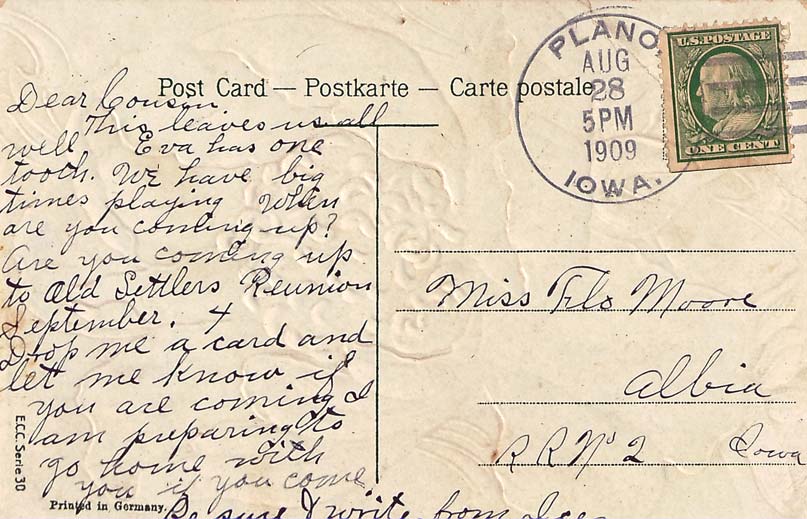 Post Card — Postkarte — Carte postale
PLANO
AUG
28
5PM
1909
IOWA.
U.S. POSTAGE
ONE CENT
Dear Cousin
This leaves us all
well Eva has one
tooth. We have big
times playing When
are you coming up?
Are you coming up
to Old Settlers Reunion
September. 4
Drop me a card and
let me know if
you are coming I
am preparing to
go home with
you if you come
Be sure & write from
Miss Flo Moore
Albia
R R No 2 Iowa
E.C.C. Serie 30
Printed in Germany.